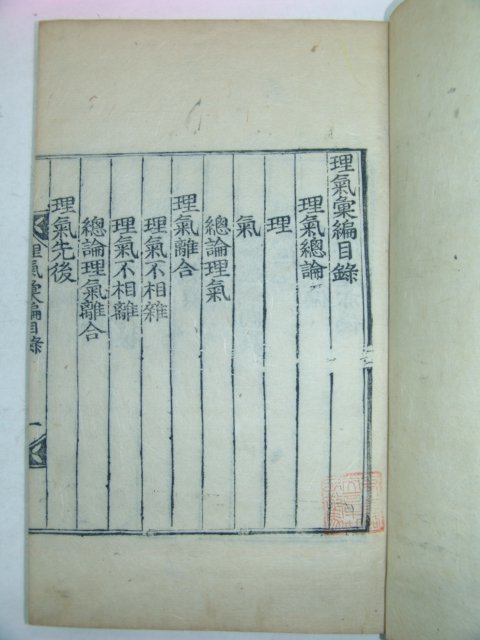 理氣彙編目錄
理氣總論
理
氣
總論理氣
理氣離合
理氣不相雜
理氣不相離
總論理氣離合
理氣先後
理氣彙編目錄
一